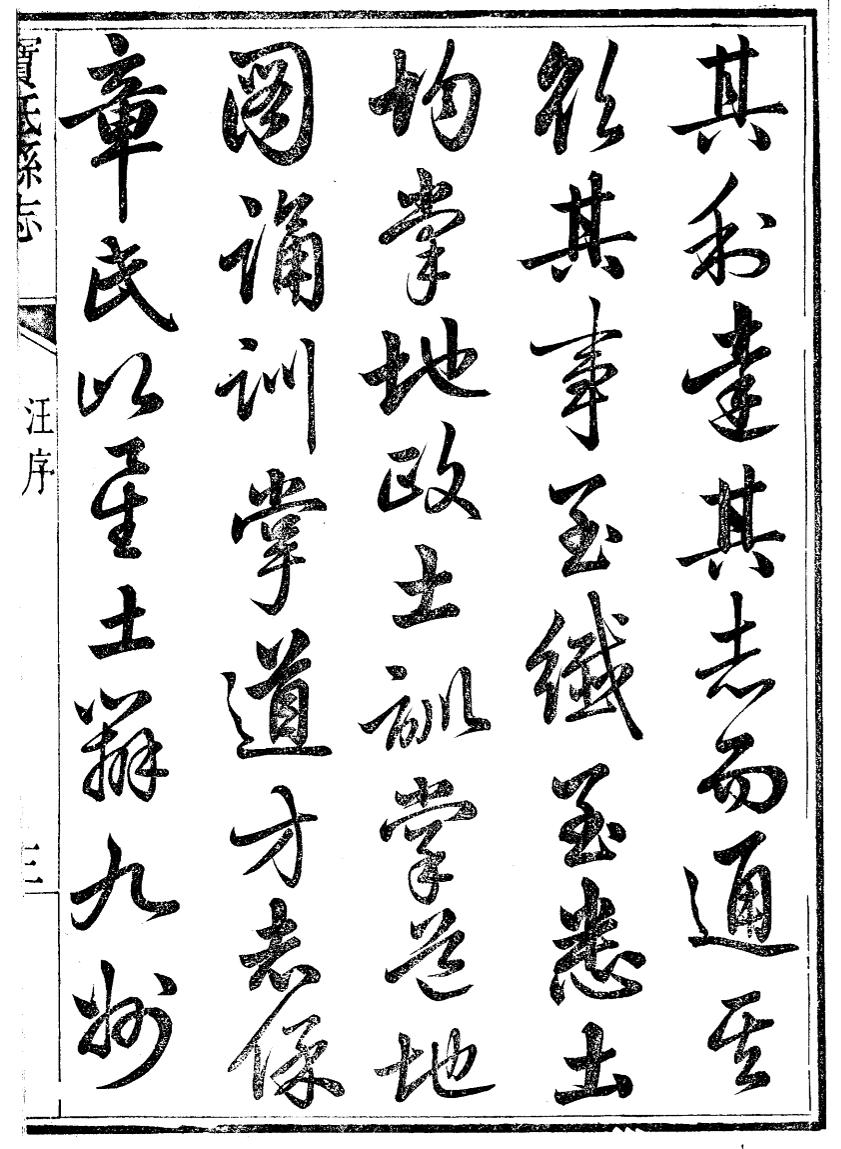 其利達其志而通其
欲其事至纖至悉土
均掌地政土訓掌道地
圖誦訓掌道方志保
章氏以星土辨九州
寶坻縣志
汪序
三